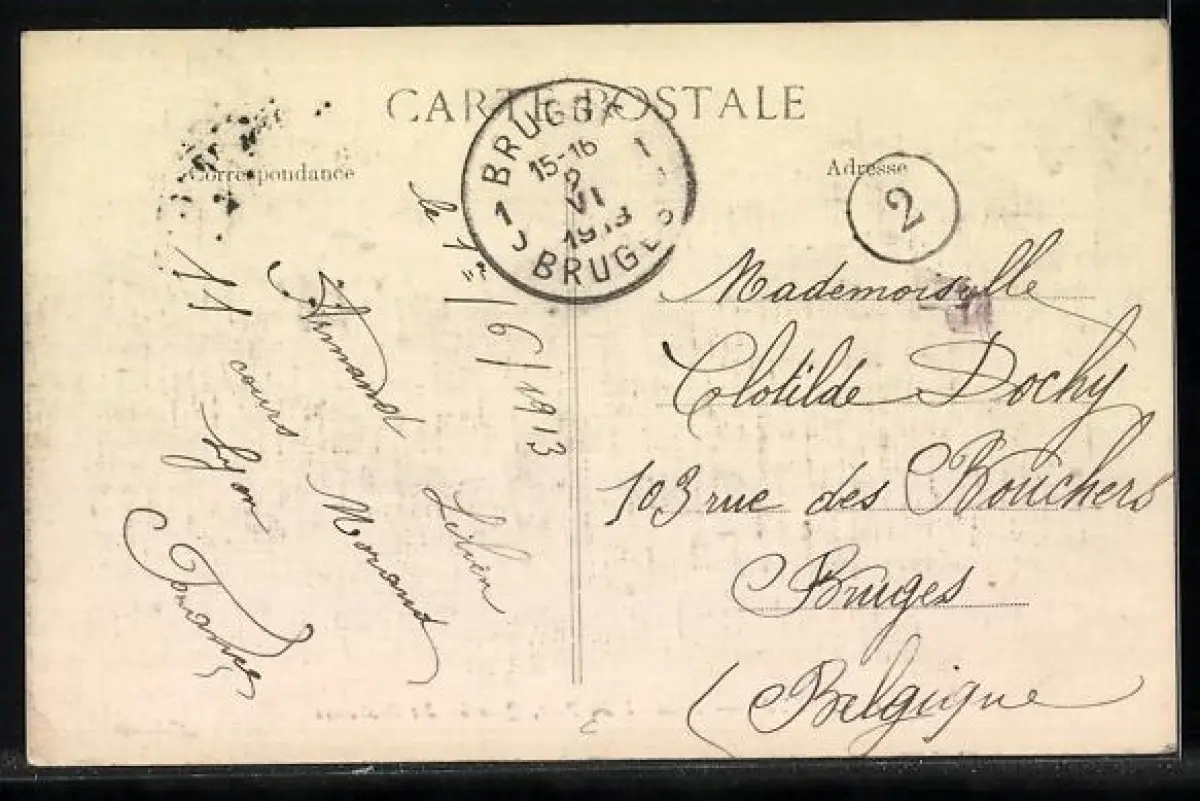 CARTE POSTALE
Correspondance
Adresse
BRUGGE
15-16
2
VI
1913
1 1
BRUGES
2
le 1er/6/1913
Armand
11 cours Morand
Lyon
France
Mademoiselle
Clotilde Dochy
103 rue des Bouchers
Bruges
(Belgique